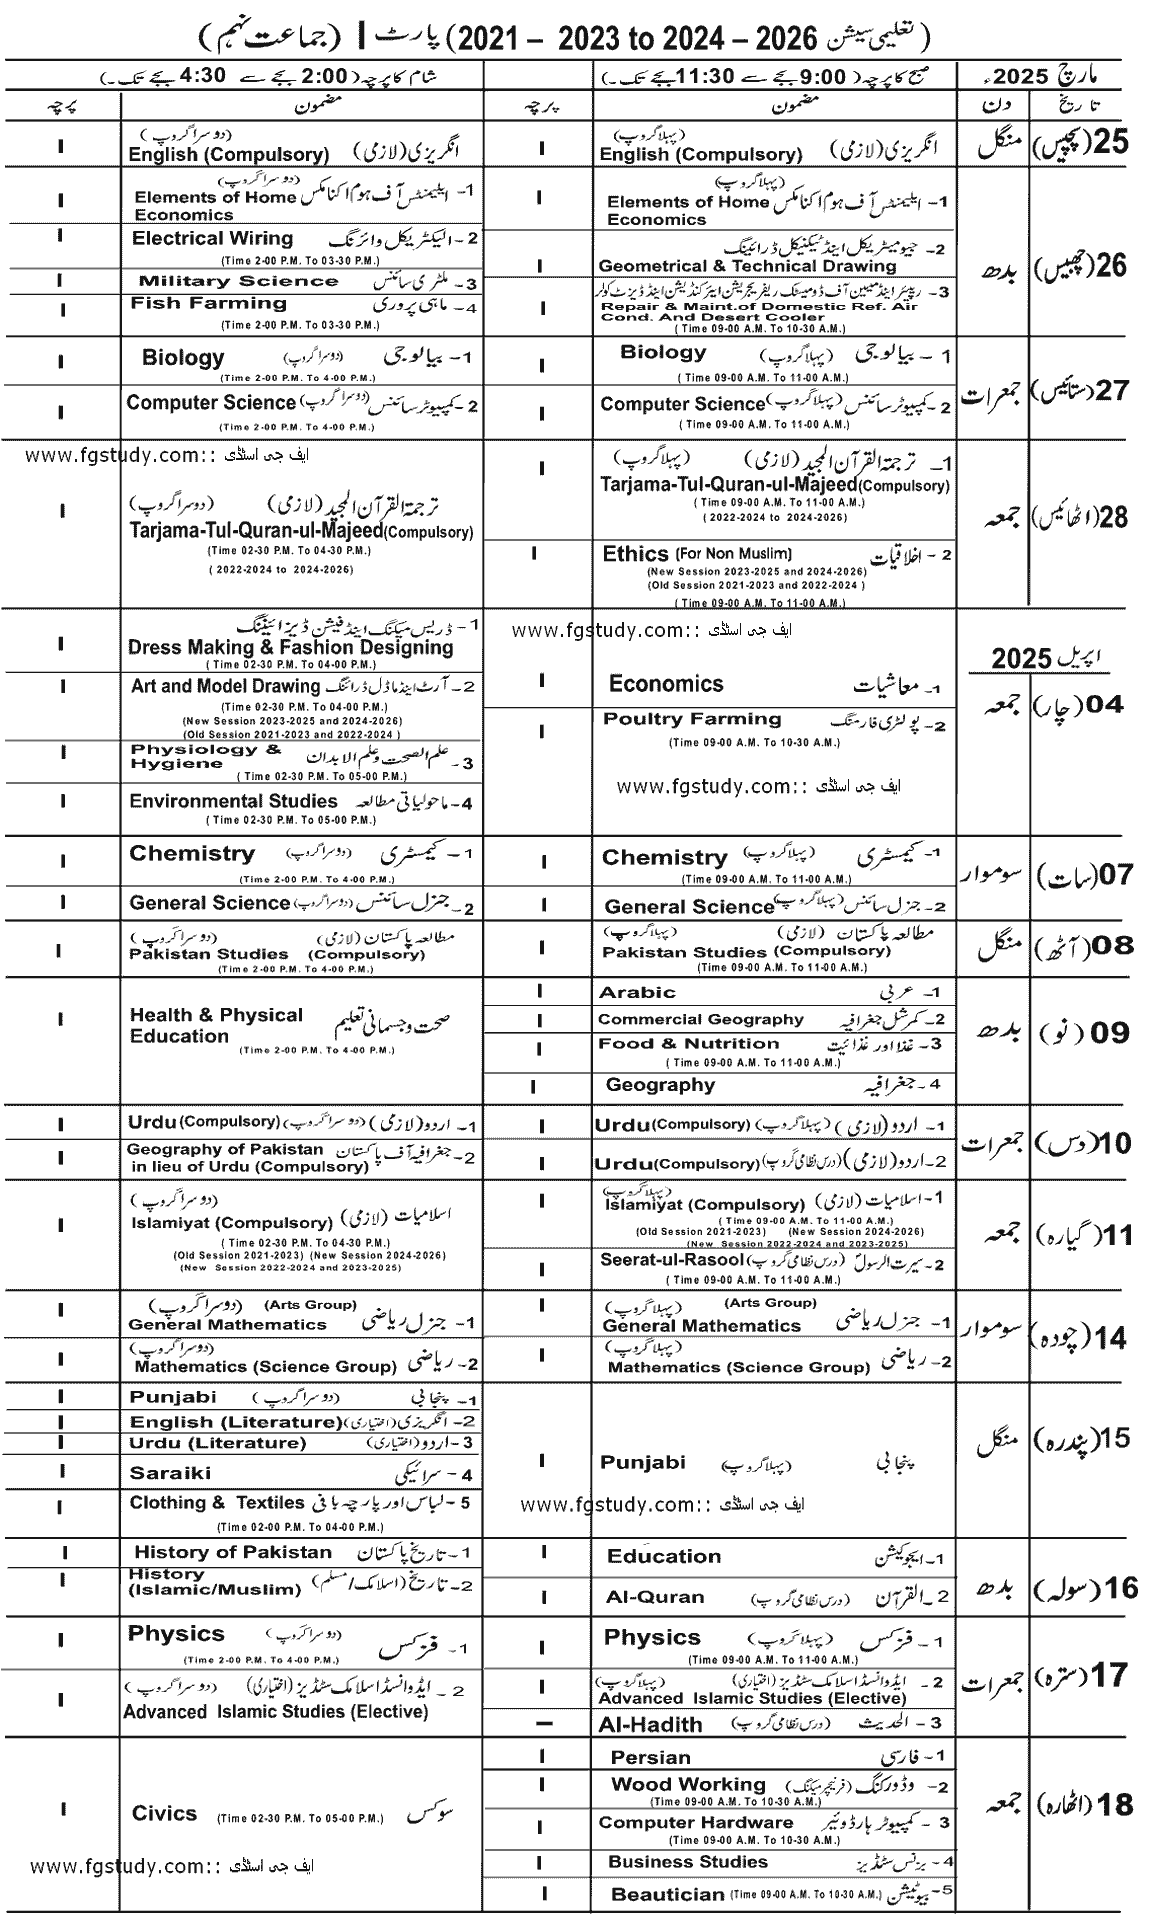 ( تعلیمی سیشن 2026 – 2024 to 2023 – 2021) پارٹ I ( جماعت نہم )
مارچ 2025ء
صبح کا پرچہ ( 9:00 بجے سے 11:30 بجے تک۔)
شام کا پرچہ ( 2:00 بجے سے 4:30 بجے تک۔)
تاریخ دن مضمون پرچہ مضمون پرچہ
25 (پچیس) منگل
(پہلا گروپ)
انگریزی (لازمی) English (Compulsory) I
(دوسرا گروپ)
انگریزی (لازمی) English (Compulsory) I
26 (چھبیس) بدھ
(پہلا گروپ)
1- ایلیمنٹس آف ہوم اکنامکس Elements of Home Economics I
2- جیومیٹریکل اینڈ ٹیکنیکل ڈرائینگ
Geometrical & Technical Drawing I
3- ریپئر اینڈ مینٹین آف ڈومیسٹک ریفریجریشن ایئر کنڈیشن اینڈ ڈیزرٹ کولر
Repair & Maint.of Domestic Ref. Air
Cond. And Desert Cooler I
( Time 09-00 A.M. To 10-30 A.M.)
(دوسرا گروپ)
1- ایلیمنٹس آف ہوم اکنامکس Elements of Home Economics I
2- الیکٹریکل وائرنگ Electrical Wiring I
(Time 2-00 P.M. To 03-30 P.M.)
3- ملٹری سائنس Military Science I
4- ماہی پروری Fish Farming I
(Time 2-00 P.M. To 03-30 P.M.)
27 (ستائیس) جمعرات
1 - بیالوجی (پہلا گروپ) Biology I
( Time 09-00 A.M. To 11-00 A.M.)
2- کمپیوٹر سائنس (پہلا گروپ) Computer Science I
( Time 09-00 A.M. To 11-00 A.M.)
1- بیالوجی (دوسرا گروپ) Biology I
(Time 2-00 P.M. To 4-00 P.M.)
2- کمپیوٹر سائنس (دوسرا گروپ) Computer Science I
(Time 2-00 P.M. To 4-00 P.M.)
28 (اٹھائیس) جمعہ
1- ترجمۃ القرآن المجید (لازمی) (پہلا گروپ) I
Tarjama-Tul-Quran-ul-Majeed(Compulsory)
( Time 09-00 A.M. To 11-00 A.M.)
( 2022-2024 to 2024-2026)
2 - اخلاقیات Ethics (For Non Muslim) I
(New Session 2023-2025 and 2024-2026)
(Old Session 2021-2023 and 2022-2024 )
( Time 09-00 A.M. To 11-00 A.M.)
www.fgstudy.com:: ایف جی اسٹڈی
ترجمۃ القرآن المجید (لازمی) (دوسرا گروپ) I
Tarjama-Tul-Quran-ul-Majeed(Compulsory)
(Time 02-30 P.M. To 04-30 P.M.)
( 2022-2024 to 2024-2026)
اپریل 2025
04 (چار) جمعہ
www.fgstudy.com:: ایف جی اسٹڈی
1- معاشیات Economics I
2- پولٹری فارمنگ Poultry Farming I
(Time 09-00 A.M. To 10-30 A.M.)
www.fgstudy.com:: ایف جی اسٹڈی
1- ڈریس میکنگ اینڈ فیشن ڈیزائیننگ
Dress Making & Fashion Designing I
( Time 02-30 P.M. To 04-00 P.M.)
2- آرٹ اینڈ ماڈل ڈرائنگ Art and Model Drawing I
(Time 02-30 P.M. To 04-00 P.M.)
(New Session 2023-2025 and 2024-2026)
(Old Session 2021-2023 and 2022-2024 )
3- علم الصحت و علم الابدان Physiology & Hygiene I
( Time 02-30 P.M. To 05-00 P.M.)
4- ماحولیاتی مطالعہ Environmental Studies I
( Time 02-30 P.M. To 05-00 P.M.)
07 (سات) سوموار
1- کیمسٹری (پہلا گروپ) Chemistry I
(Time 09-00 A.M. To 11-00 A.M.)
2- جنرل سائنس (پہلا گروپ) General Science I
1- کیمسٹری (دوسرا گروپ) Chemistry I
(Time 2-00 P.M. To 4-00 P.M.)
2- جنرل سائنس (دوسرا گروپ) General Science I
08 (آٹھ) منگل
مطالعہ پاکستان (لازمی) (پہلا گروپ) I
Pakistan Studies (Compulsory)
(Time 09-00 A.M. To 11-00 A.M.)
مطالعہ پاکستان (لازمی) (دوسرا گروپ) I
Pakistan Studies (Compulsory)
(Time 2-00 P.M. To 4-00 P.M.)
09 (نو) بدھ
1- عربی Arabic I
2- کمرشل جغرافیہ Commercial Geography I
3- غذا اور غذائیت Food & Nutrition I
( Time 09-00 A.M. To 11-00 A.M.)
4- جغرافیہ Geography I
صحت و جسمانی تعلیم Health & Physical Education I
(Time 2-00 P.M. To 4-00 P.M.)
10 (دس) جمعرات
1- اردو (لازمی) (پہلا گروپ) Urdu(Compulsory) I
2- اردو (لازمی) (درس نظامی گروپ) Urdu(Compulsory) I
1- اردو (لازمی) (دوسرا گروپ) Urdu(Compulsory) I
2- جغرافیہ آف پاکستان Geography of Pakistan
in lieu of Urdu (Compulsory) I
11 (گیارہ) جمعہ
(پہلا گروپ)
1- اسلامیات (لازمی) Islamiyat (Compulsory) I
( Time 09-00 A.M. To 11-00 A.M.)
(Old Session 2021-2023) (New Session 2024-2026)
(New Session 2022-2024 and 2023-2025)
2- سیرت الرسولؐ (درس نظامی گروپ) Seerat-ul-Rasool I
( Time 09-00 A.M. To 11-00 A.M.)
(دوسرا گروپ)
اسلامیات (لازمی) Islamiyat (Compulsory) I
( Time 02-30 P.M. To 04-30 P.M.)
(Old Session 2021-2023) (New Session 2024-2026)
(New Session 2022-2024 and 2023-2025)
14 (چودہ) سوموار
(پہلا گروپ) (Arts Group)
1- جنرل ریاضی General Mathematics I
(پہلا گروپ)
2- ریاضی Mathematics (Science Group) I
(دوسرا گروپ) (Arts Group)
1- جنرل ریاضی General Mathematics I
(دوسرا گروپ)
2- ریاضی Mathematics (Science Group) I
15 (پندرہ) منگل
پنجابی (پہلا گروپ) Punjabi I
www.fgstudy.com:: ایف جی اسٹڈی
1- پنجابی (دوسرا گروپ) Punjabi I
2- انگریزی (اختیاری) English (Literature) I
3- اردو (اختیاری) Urdu (Literature) I
4 - سرائیکی Saraiki I
5 - لباس اور پارچہ بافی Clothing & Textiles I
(Time 02-00 P.M. To 04-00 P.M.)
16 (سولہ) بدھ
1- ایجوکیشن Education I
2- القرآن (درس نظامی گروپ) Al-Quran I
1- تاریخ پاکستان History of Pakistan I
2- تاریخ (اسلامک/مسلم) History (Islamic/Muslim) I
17 (سترہ) جمعرات
1- فزکس (پہلا گروپ) Physics I
(Time 09-00 A.M. To 11-00 A.M.)
2- ایڈوانسڈ اسلامک سٹڈیز (اختیاری) (پہلا گروپ)
Advanced Islamic Studies (Elective) I
3 - الحدیث (درس نظامی گروپ) Al-Hadith —
1- فزکس (دوسرا گروپ) Physics I
(Time 2-00 P.M. To 4-00 P.M.)
2 - ایڈوانسڈ اسلامک سٹڈیز (اختیاری) (دوسرا گروپ)
Advanced Islamic Studies (Elective) I
18 (اٹھارہ) جمعہ
1- فارسی Persian I
2- وڈ ورکنگ (فرنیچر میکنگ) Wood Working I
(Time 09-00 A.M. To 10-30 A.M.)
3 - کمپیوٹر ہارڈوئیر Computer Hardware I
(Time 09-00 A.M. To 10-30 A.M.)
4- بزنس سٹڈیز Business Studies I
5- بیوٹیشن Beautician (Time 09-00 A.M. To 10-30 A.M.) I
سوکس Civics (Time 02-30 P.M. To 05-00 P.M.) I
www.fgstudy.com:: ایف جی اسٹڈی